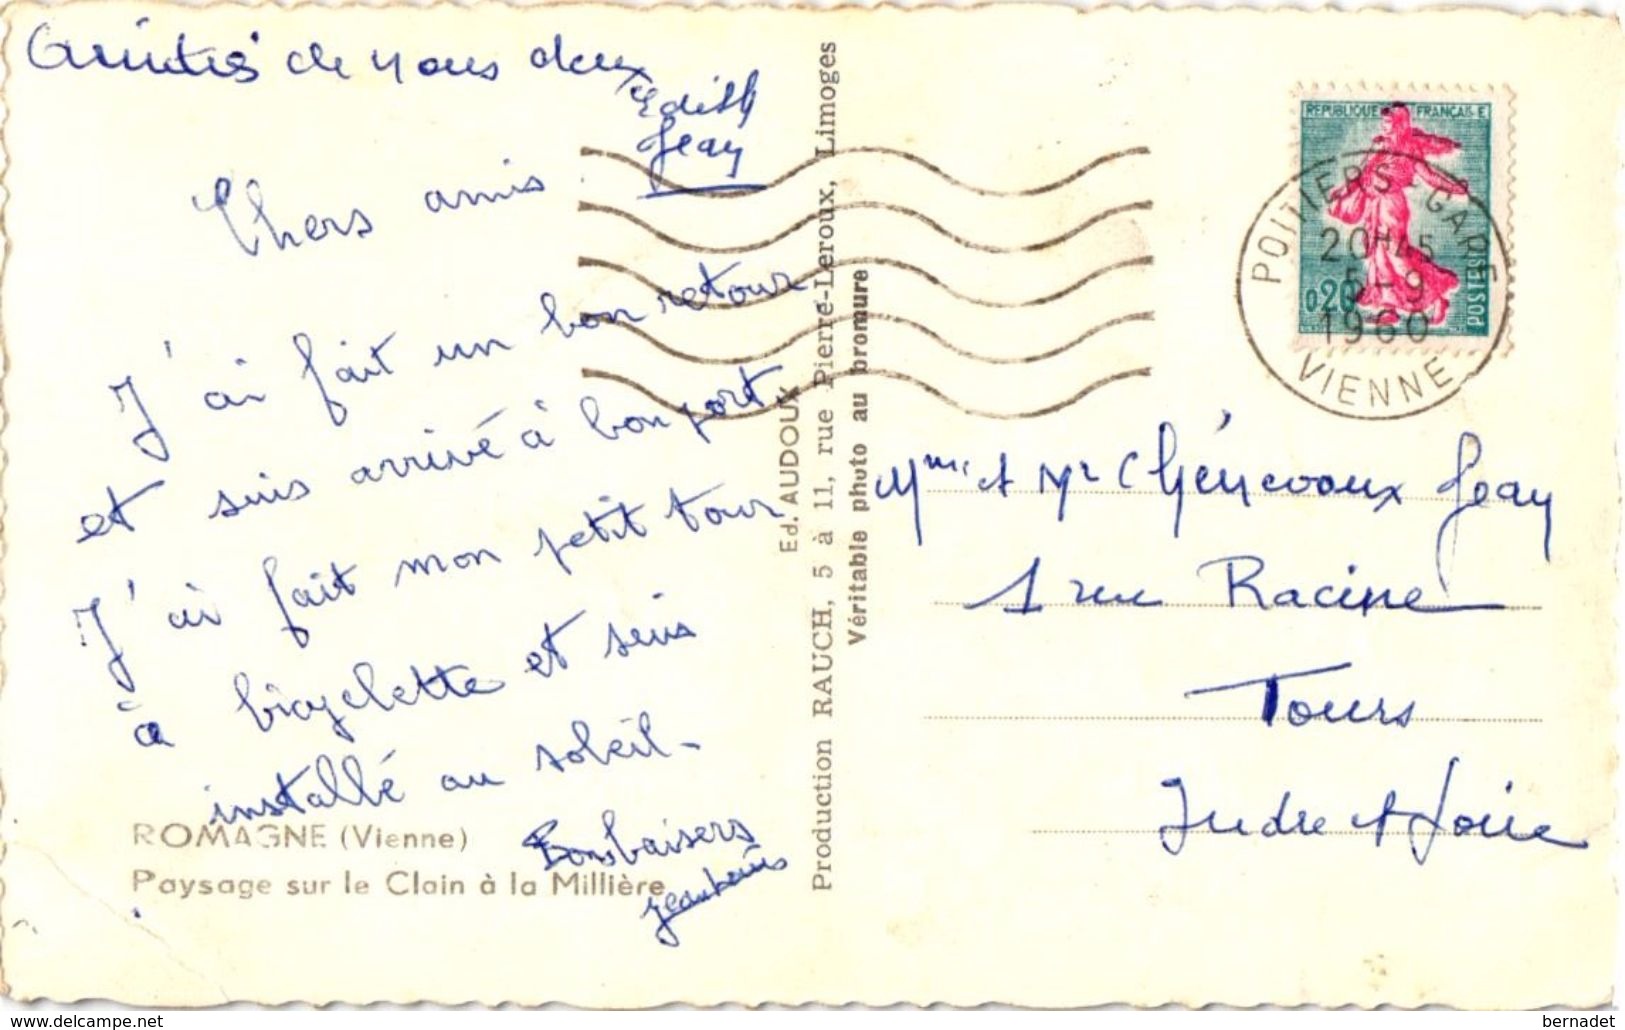 Amitiés de nous deux
Edith
Jean
Chers amis
J'ai fait un bon retour
et suis arrivé à bon port.
J'ai fait mon petit tour
à bicyclette et suis
installé au soleil -
Bons baisers
Jean Louis
ROMAGNE (Vienne)
Paysage sur le Clain à la Millière
Ed. AUDOUX
Production RAUCH, 5 à 11, rue Pierre-Leroux, Limoges
Véritable photo au bromure
REPUBLIQUE FRANÇAISE
0,20
POSTES
POITIERS-GARE
20H45
5-9
1960
VIENNE
Mme et Mr Chénevaux Jean
1 rue Racine
Tours
Indre et Loire
www.delcampe.net
bernadet